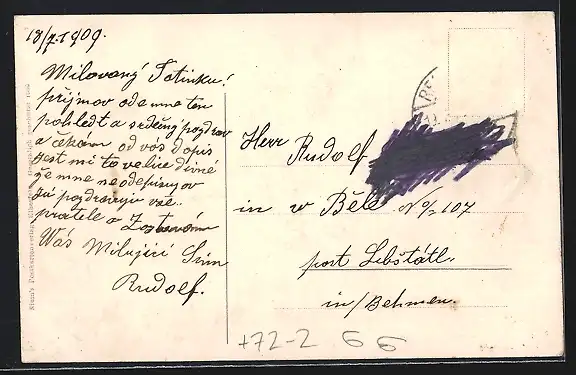 18/7.1909.
Milovaný Totinku!
příjmov odemne ten
pohledt a srdečný pozdrav
a čekám od vos dopis
jest mi to velice divné
že mne neodepisujov
pozdravuju vše
pratele a Zostavám
Wás Milující Sin
Rudolf.
Herr Rudolf
in w Běle No 107
post Libštátl.
in/Behmen.
+72-2 66